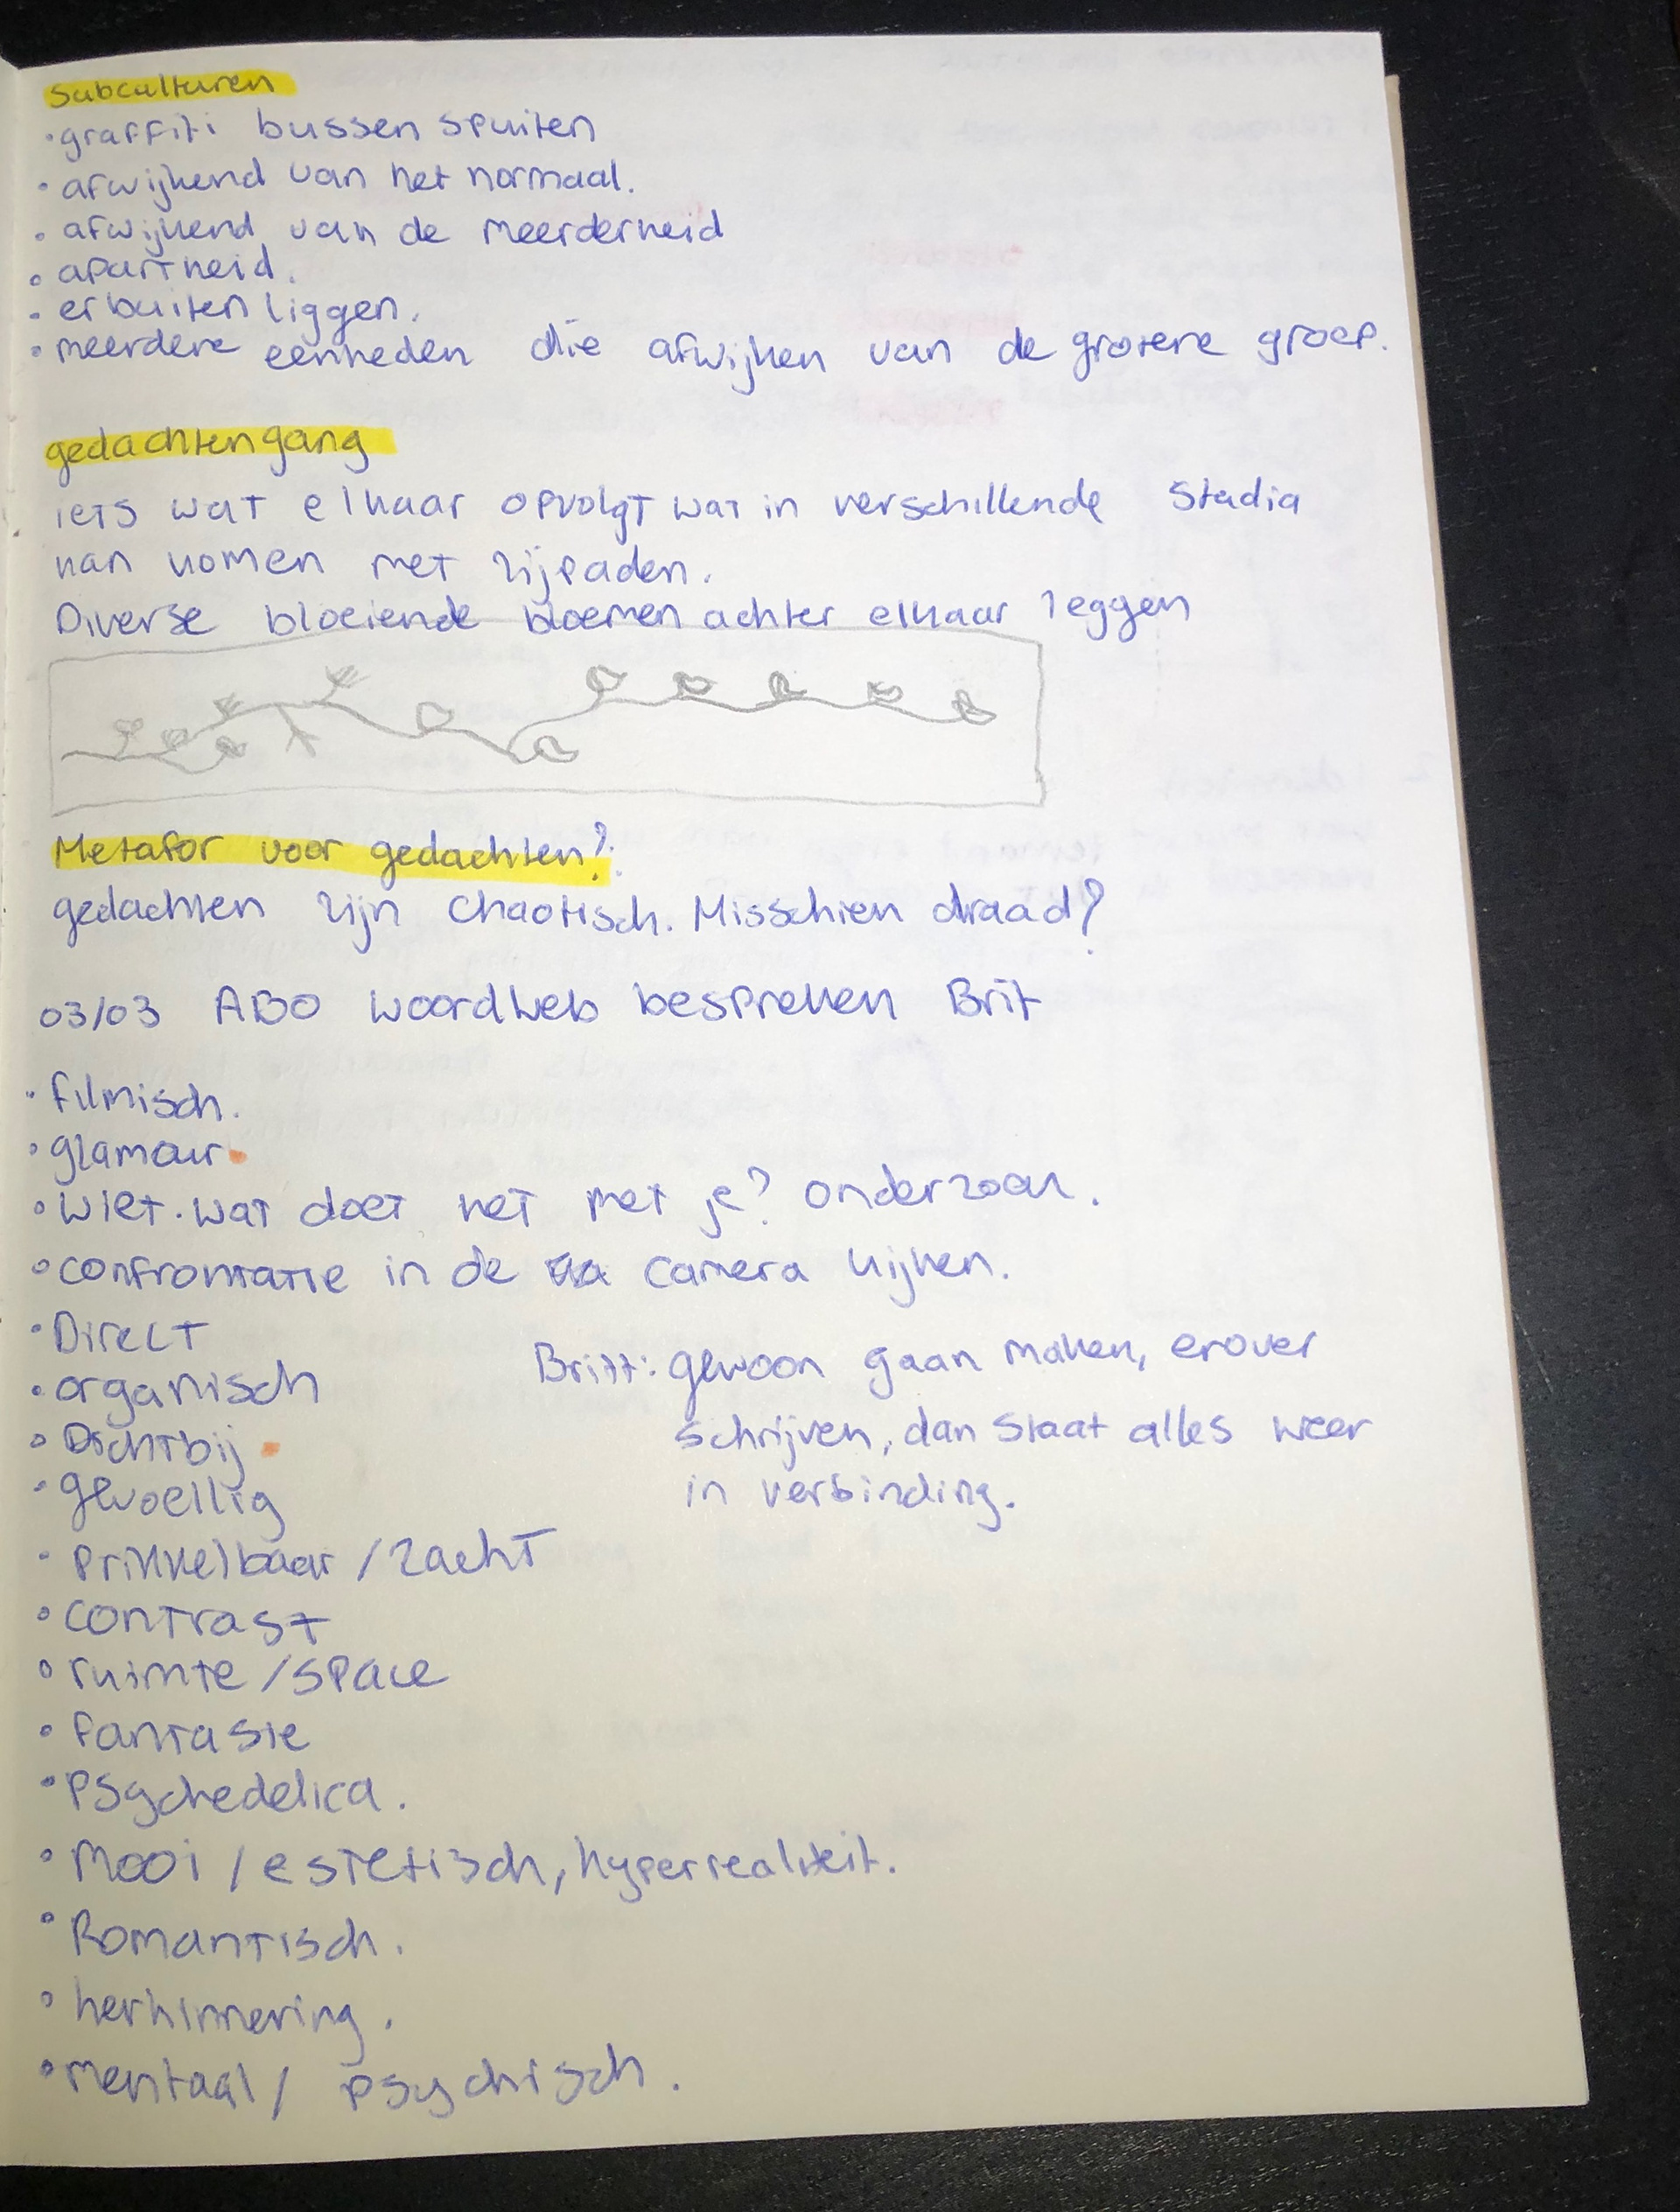 Subculturen
• graffiti bussen spuiten
• afwijkend van het normaal.
• afwijkend van de meerderheid
• apartheid.
• erbuiten liggen.
• meerdere eenheden die afwijken van de grotere groep.
gedachtengang
iets wat elkaar opvolgt wat in verschillende stadia
kan komen met zijpaden.
Diverse bloeiende bloemen achter elkaar leggen
Metafor voor gedachten?
gedachten zijn chaotisch. Misschien draad?
03/03 ABO woordweb bespreken Brit
• filmisch.
• glamour
• Wiet. wat doet het met je? onderzoek.
• confrontatie in de camera kijken.
• Direct
• organisch
Britt: gewoon gaan maken, erover
schrijven, dan staat alles weer
in verbinding.
• Dichtbij
• gevoellig
• prikkelbaar / zacht
• contrast
• ruimte / space
• fantasie
• psychedelica.
• Mooi / estetisch, hyperrealiteit.
• Romantisch.
• herhinnering.
• mentaal / psychisch.